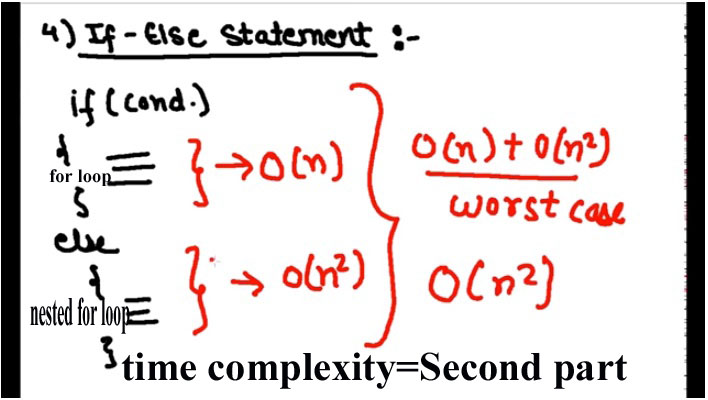 4) If-Else Statement :-
if (cond.)
{
for loop } → O(n)
}
else
{
nested for loop } → O(n²)
}
O(n) + O(n²)
worst case
O(n²)
time complexity=Second part